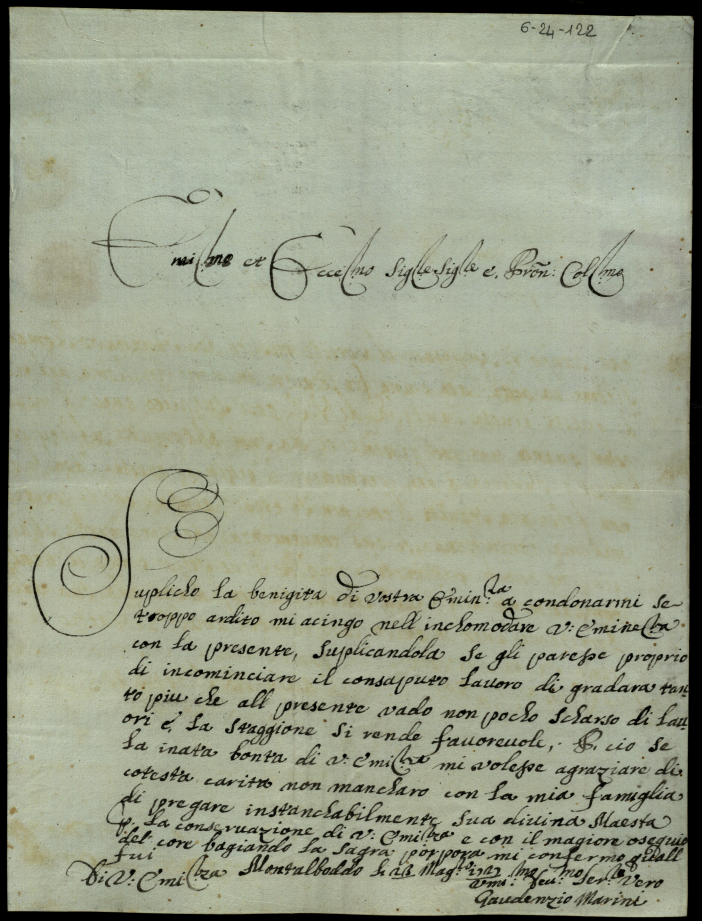 6-24-122
Emi͞mo et Ecce͞mo Sig͞le Sig͞le e. Pro͞n: Col͞mo
Suplicho la benigita di vostra Emin:za a condonarmi se
troppo ardito mi acingo nell inchomodare V: Eminezza
con la presente, Suplicandola se gli paresse proprio
di incominciare il consaputo lavoro di gradara tan
to piu che all presente vado non pocho scharso di lau
ori e la staggione si rende favorevole, P. cio se
la inata bonta di V: Emi͞za mi volesse agraziare di
cotesta carita non mancharo con la mia famiglia
di pregare instanchabilmente sua divina Maesta
p. la conservazione di V: Emi͞za e con il magiore osequio
del core bagiando la sagra porpora mi confermo
fui
Di V: Emi͞za Montalboddo li
Umi:mo Deu:mo Ser:re Vero
Gaudenzio Marini